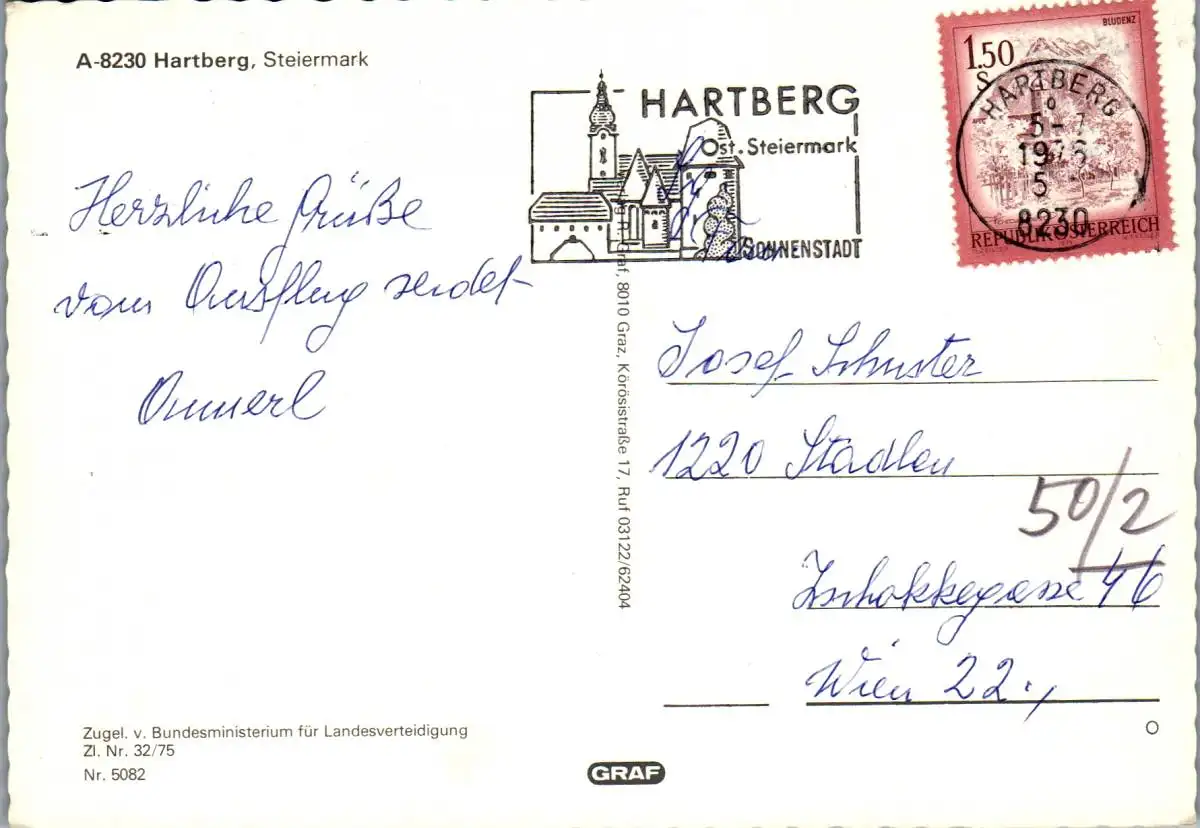 A-8230 Hartberg, Steiermark
Herzliche Grüße
vom Ausflug sendet
Annerl
Zugel. v. Bundesministerium für Landesverteidigung
Zl. Nr. 32/75
Nr. 5082
HARTBERG
Ost. Steiermark
SONNENSTADT
Graf, 8010 Graz, Körösistraße 17, Ruf 03122/62404
GRAF
BLUDENZ
1.50
S
REPUBLIK ÖSTERREICH
HARTBERG
5-7
1976
5
8230
Josef Schuster
1220 Stadlau
50/2
Zschokkegasse 46
Wien 22.,